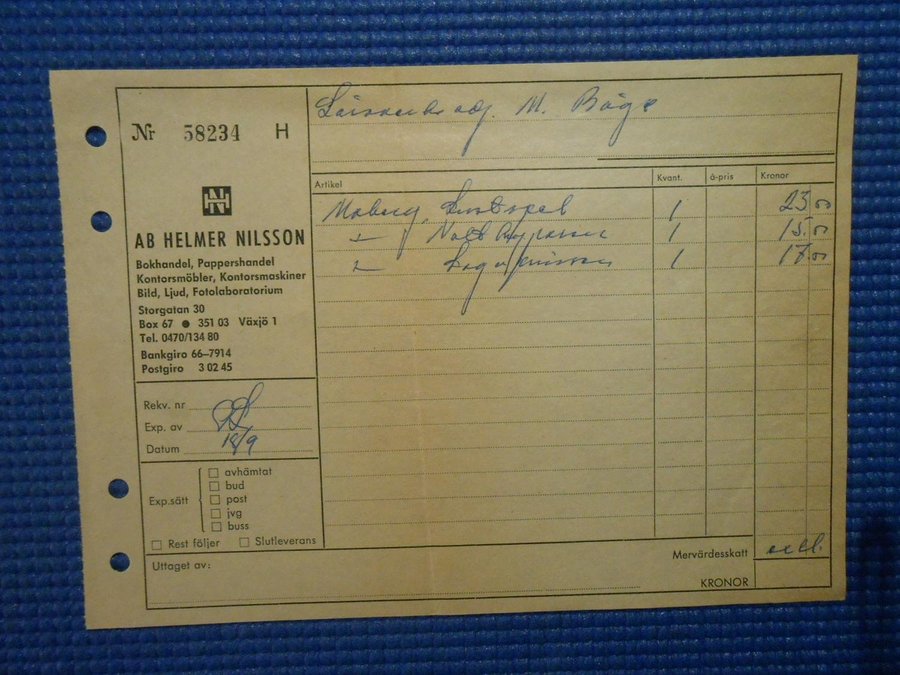 Nr 58234 H
M. Båge
HN
AB HELMER NILSSON
Bokhandel, Pappershandel
Kontorsmöbler, Kontorsmaskiner
Bild, Ljud, Fotolaboratorium
Storgatan 30
Box 67 ● 351 03 Växjö 1
Tel. 0470/134 80
Bankgiro 66–7914
Postgiro 3 02 45
Rekv. nr
Exp. av
Datum 18/9
Exp.sätt
avhämtat
bud
post
jvg
buss
Rest följer Slutleverans
Artikel Kvant. à-pris Kronor
Moberg, Lustspel 1 23.00
1 15.00
1 17.00
Uttaget av:
Mervärdesskatt
KRONOR